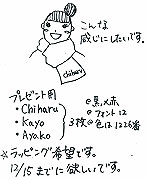 こんな
感じにしたいです。
chiharu
プレゼント用
・Chiharu
・Kayo
・Ayako
@黒メ赤
@フォント12
3枚@色は1226番
☆ラッピング希望です。
12/15までに欲しいです。